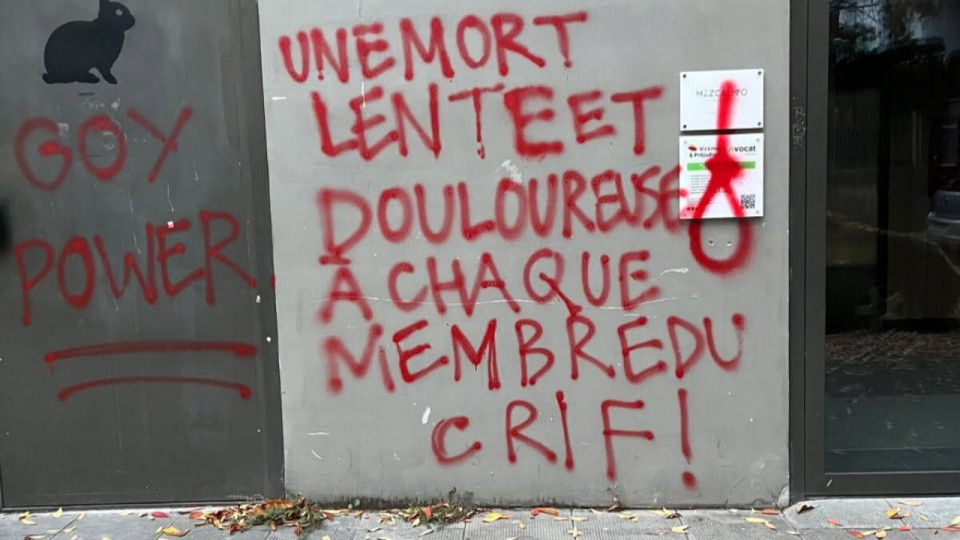 GOY
POWER.
UNE MORT
LENTE ET
DOULOUREUSE
À CHAQUE
MEMBRE DU
CRIF!
Avocat